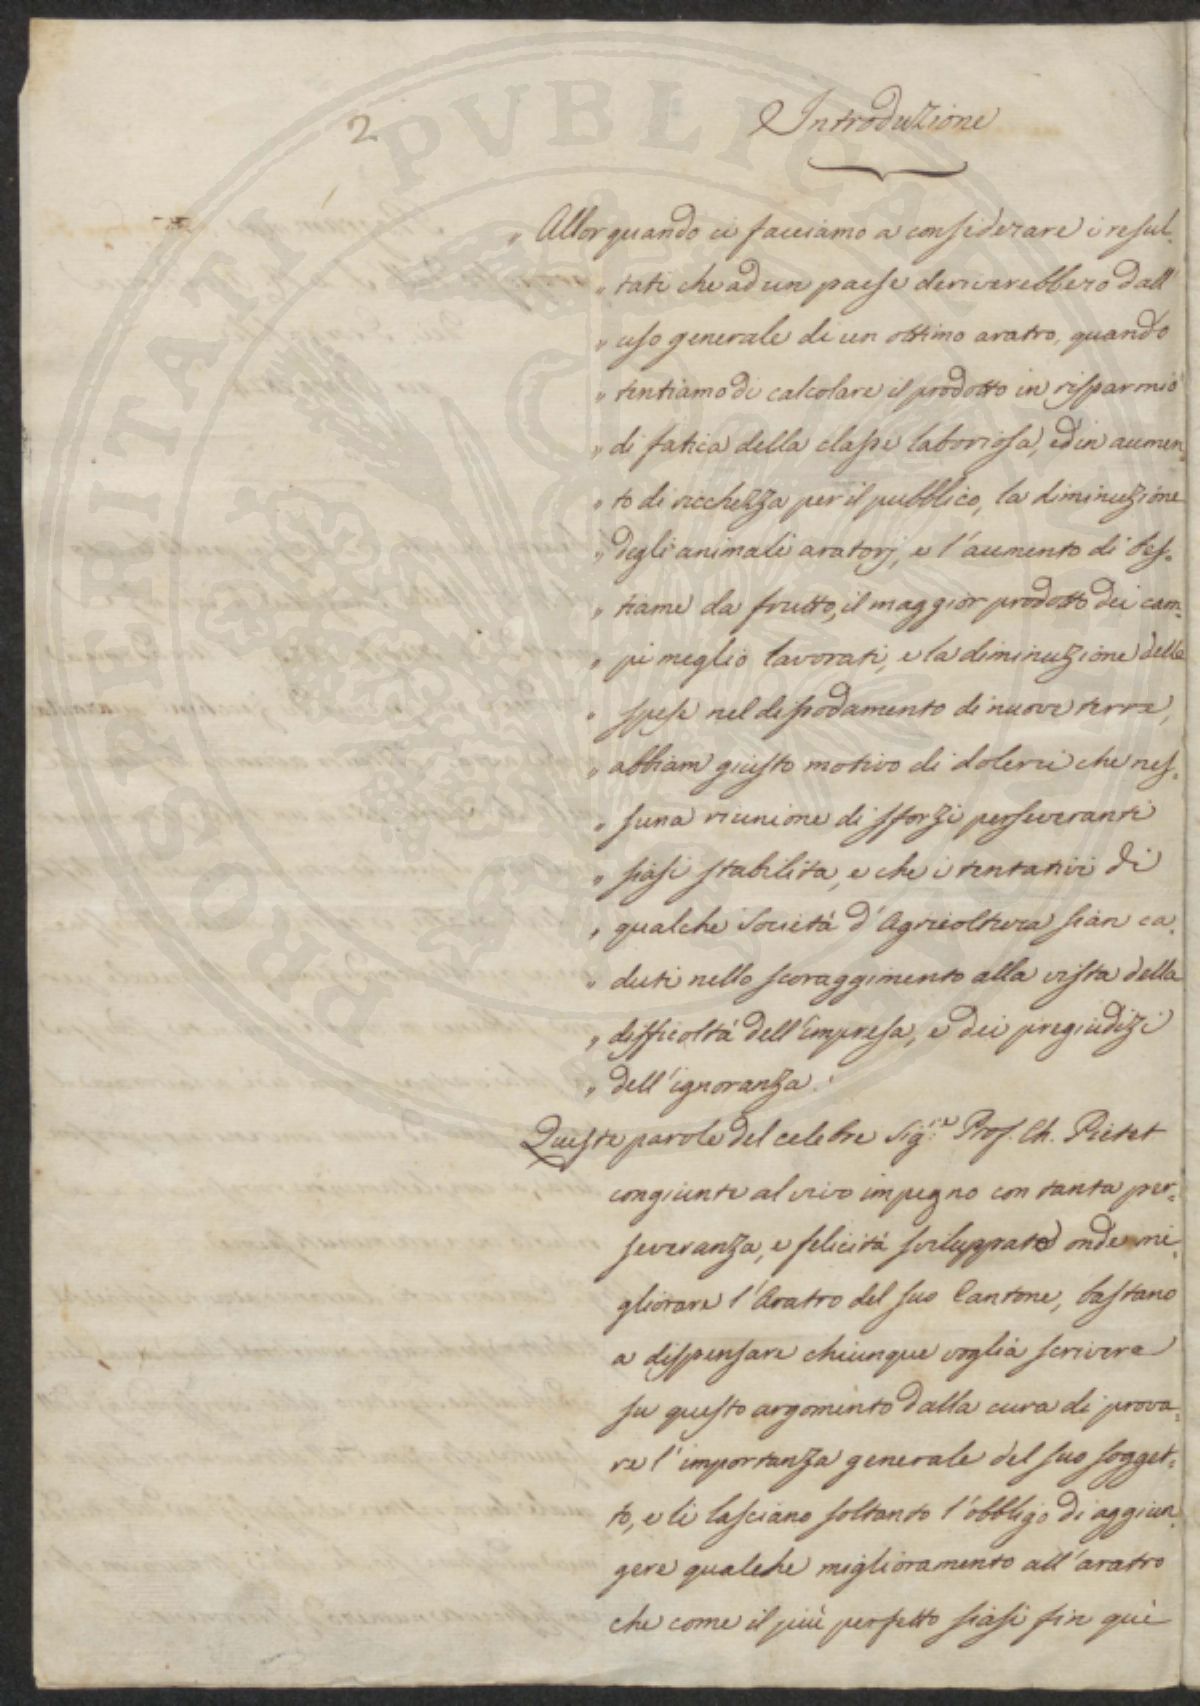 2
Introduzione
„ Allorquando ci facciamo a considerare i resul-
„ tati che ad un paese deriverebbero dall'
„ uso generale di un ottimo aratro, quando
„ tentiamo di calcolare il prodotto in risparmio
„ di fatica della classe laboriosa, ed in aumen-
„ to di ricchezza per il pubblico, la diminuzione
„ degli animali aratorj, e l'aumento di bes-
„ tiame da frutto, il maggior prodotto dei cam-
„ pi meglio lavorati, e la diminuzione delle
„ spese nel dissodamento di nuove terre,
„ abbiam giusto motivo di dolerci che nes-
„ suna riunione di sforzi perseveranti
„ siasi stabilita, e che i tentativi di
„ qualche Società d'Agricoltura sian ca-
„ duti nello scoraggimento alla vista della
„ difficoltà dell'impresa, e dei pregiudizi
„ dell'ignoranza.
Queste parole del celebre Sig.re Prof. Ch. Pictet
congiunte al vivo impegno con tanta per-
severanza, e felicità sviluppato onde mi-
gliorare l'Aratro del suo Cantone, bastano
a dispensare chiunque voglia scrivere
su questo argomento dalla cura di prova-
re l'importanza generale del suo sogget-
to, e li lasciano soltanto l'obbligo di aggiun-
gere qualche miglioramento all'aratro
che come il più perfetto siasi fin quì
PROSPERITATI PVBLICAE